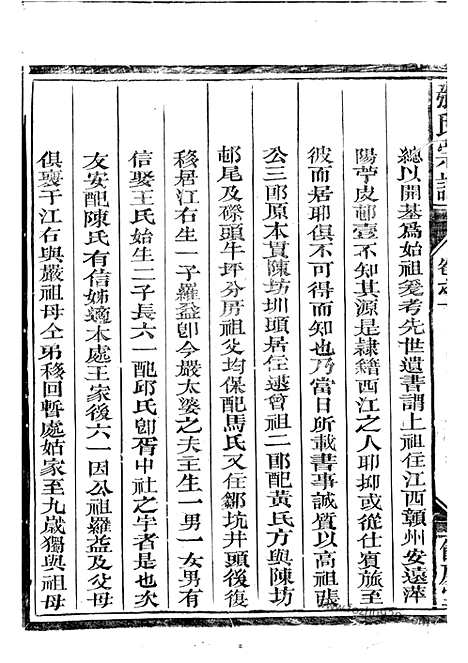 張氏宗譜 卷之一
總以開基為始祖爰考先世遺書謂上祖住江西贛州安遠萍
陽苧皮邨壹不知其源是隷籍西江之人耶抑或從仕賓旅至
彼而居耶俱不可得而知也乃當日所載書事誠質以高祖張
公三郎原本貫陳坊圳頭居住逮曾祖二郎配黃氏方與陳坊
邨尾及磜頭牛坪分房祖父均保配馬氏又住鄒坑井頭後復
移居江右生一子羅益卽今嚴太婆之夫主生一男一女男有
信娶王氏始生二子長六一配邱氏卽胥中社之宇者是也次
友安配陳氏有信姊適本處王家後六一因公祖羅益及父母
俱喪于江右與嚴祖母仝弟移回暫處姑家至九歲獨與祖母